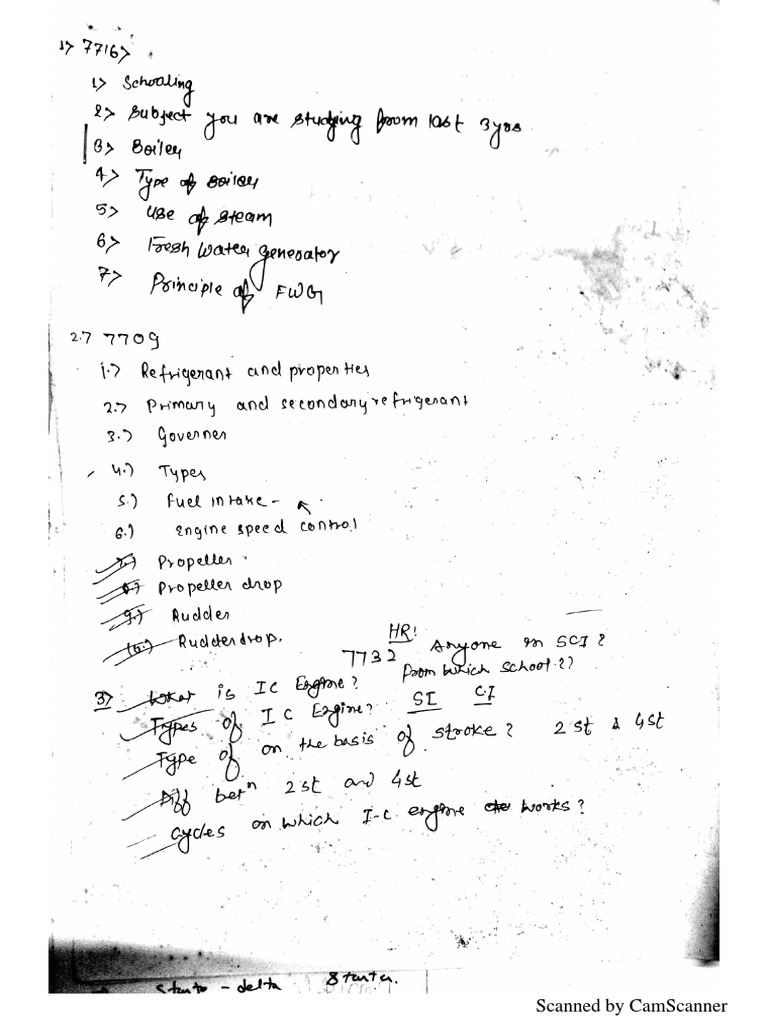 1> 7716>
1> Schooling
2> Subject you are studying from last 3yrs
3> Boiler
4> Type of Boiler
5> Use of steam
6> Fresh Water generator
7> Principle of FWG
2.> 7709
1.> Refrigerant and properties
2.> Primary and secondary refrigerant
3.) Governer
4.) Types
5.) Fuel intake -
6.) Engine speed control
7.) Propeller
8.) Propeller drop
9.) Rudder
10.) Rudder drop.
HR!
7732 Anyone in SCI?
From which school??
3> What is IC Engine?
Types of IC Engine? SI C.I
Type of on the basis of stroke? 2 st & 4st
Diff betn 2 st and 4st
Cycles on which I-C engine works?
Starto - delta Starter.
Scanned by CamScanner